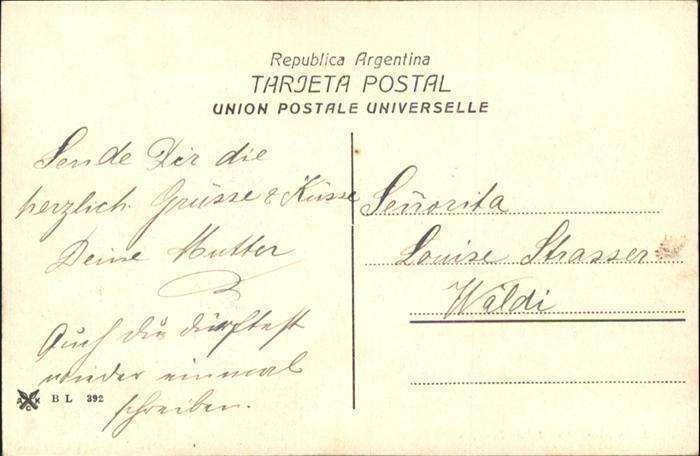 Republica Argentina
TARJETA POSTAL
UNION POSTALE UNIVERSELLE
Sende Dir die
herzlich. Grüsse & Küsse
Deine Mutter
Auch du dürftest
wieder einmal
schreiben.
Señorita
Louise Strasser
Wäldi
BL 392